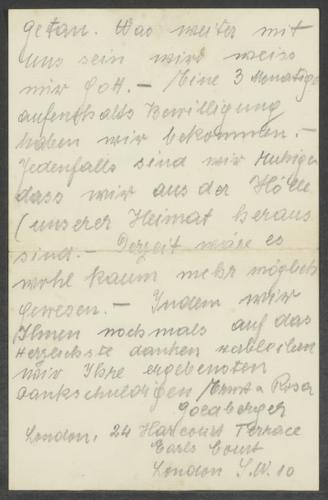 getan. Was weiter mit
uns sein wird weiss
nur Gott. – Eine 3 Monatige
aufenthalts Bewilligung
haben wir bekommen. –
Jedenfalls sind wir Ruhiger
dass wir aus der Hölle
(unserer Heimat heraus
sind. – Derzeit wäre es
wohl kaum mehr möglich
gewesen. – Indem wir
Ihnen nochmals auf das
Herzlichste danken verbleiben
wir Ihre ergebensten
dankschuldigen Ernst & Rosa
Goldberger
London, 24 Harcourt Terrace
Earls Court
London S.W. 10